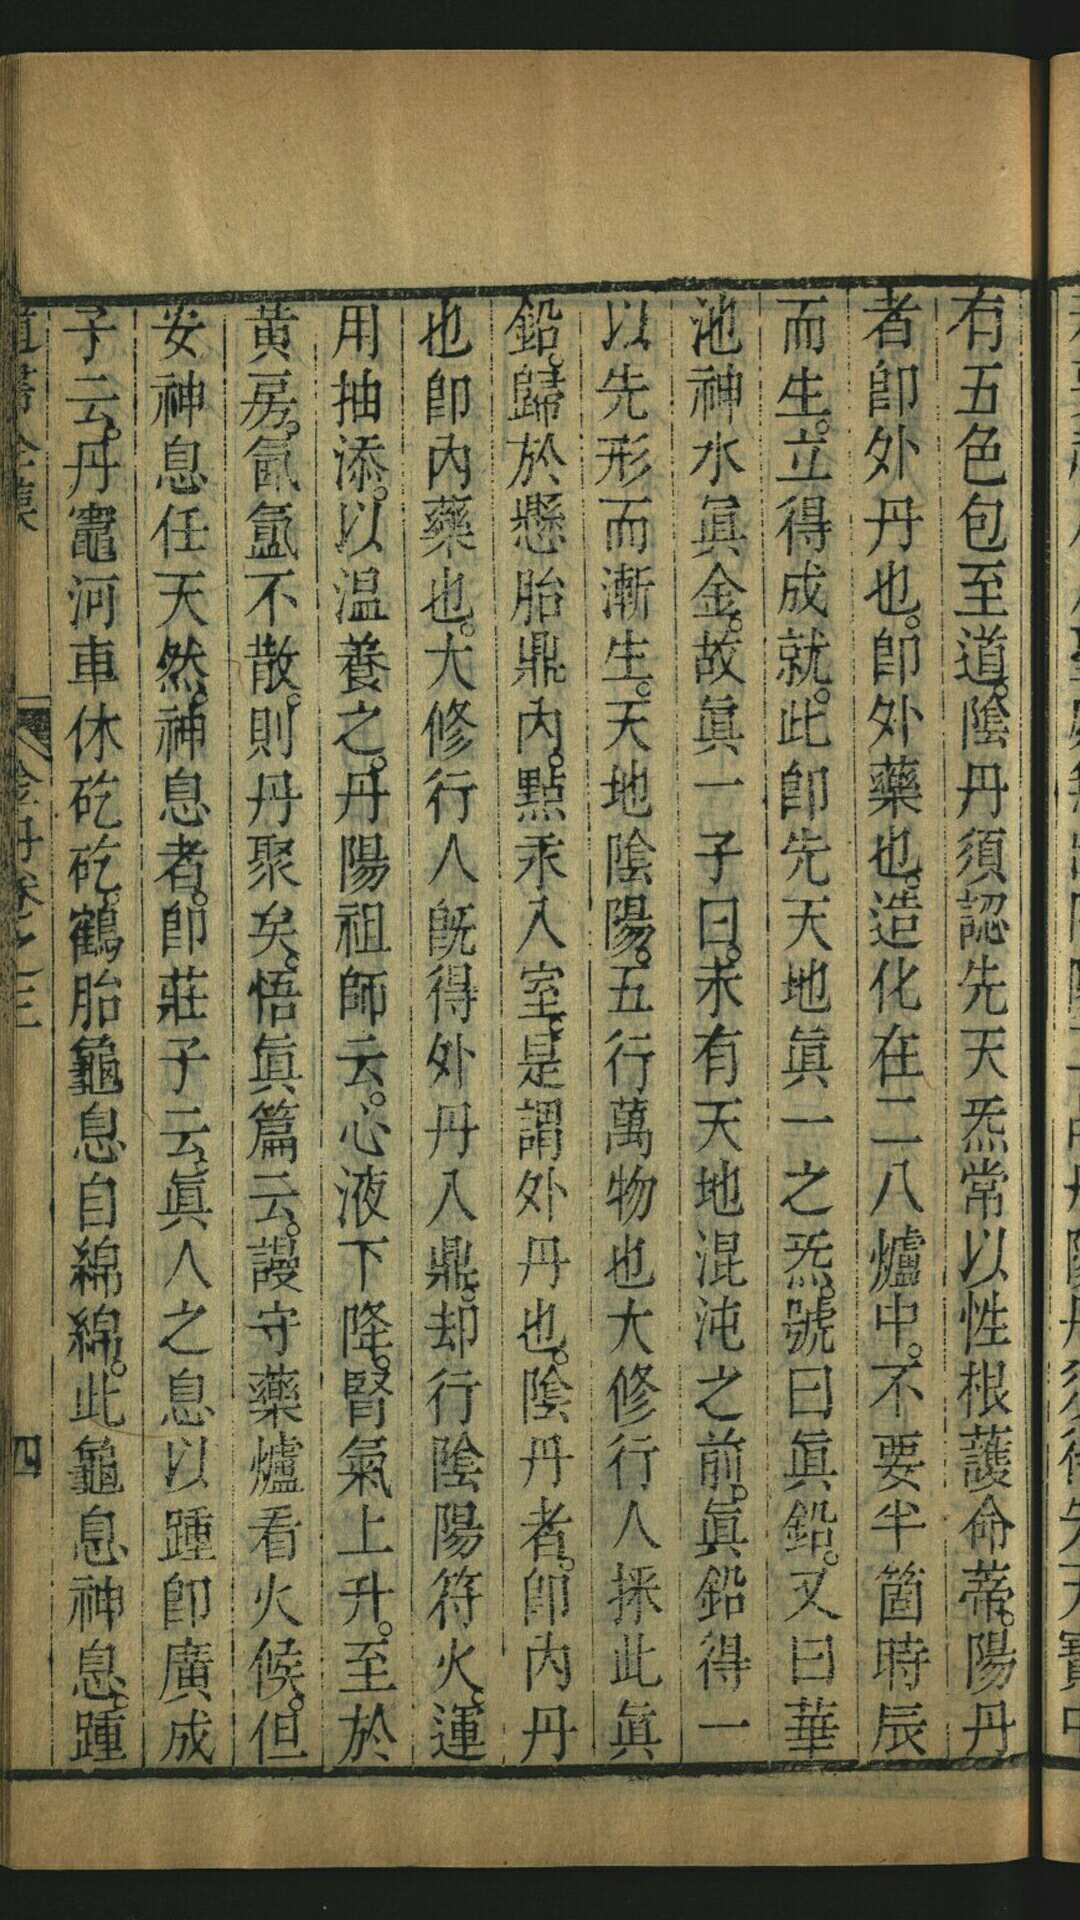 有五色包至道。陰丹須認先天炁常以性根護命蒂。陽丹
者卽外丹也。卽外藥也。造化在二八爐中。不要半箇時辰
而生。立得成就。此卽先天地眞一之炁。號曰眞鉛。又曰華
池神水眞金。故眞一子曰。未有天地混沌之前。眞鉛得一
以先形而漸生。天地陰陽。五行萬物也大修行人採此眞
鉛。歸於懸胎鼎內。點汞入室。是謂外丹也。陰丹者。卽內丹
也卽內藥也。大修行人旣得外丹入鼎。却行陰陽符火。運
用抽添。以温養之。丹陽祖師云。心液下降。腎氣上升。至於
黃房。氤氲不散。則丹聚矣。悟眞篇云。謾守藥爐看火候。但
安神息任天然。神息者。卽莊子云。眞人之息以踵卽廣成
子云。丹竈河車休矻矻。鶴胎龜息自綿綿。此龜息神息。踵
道書全集
金丹卷之三
四